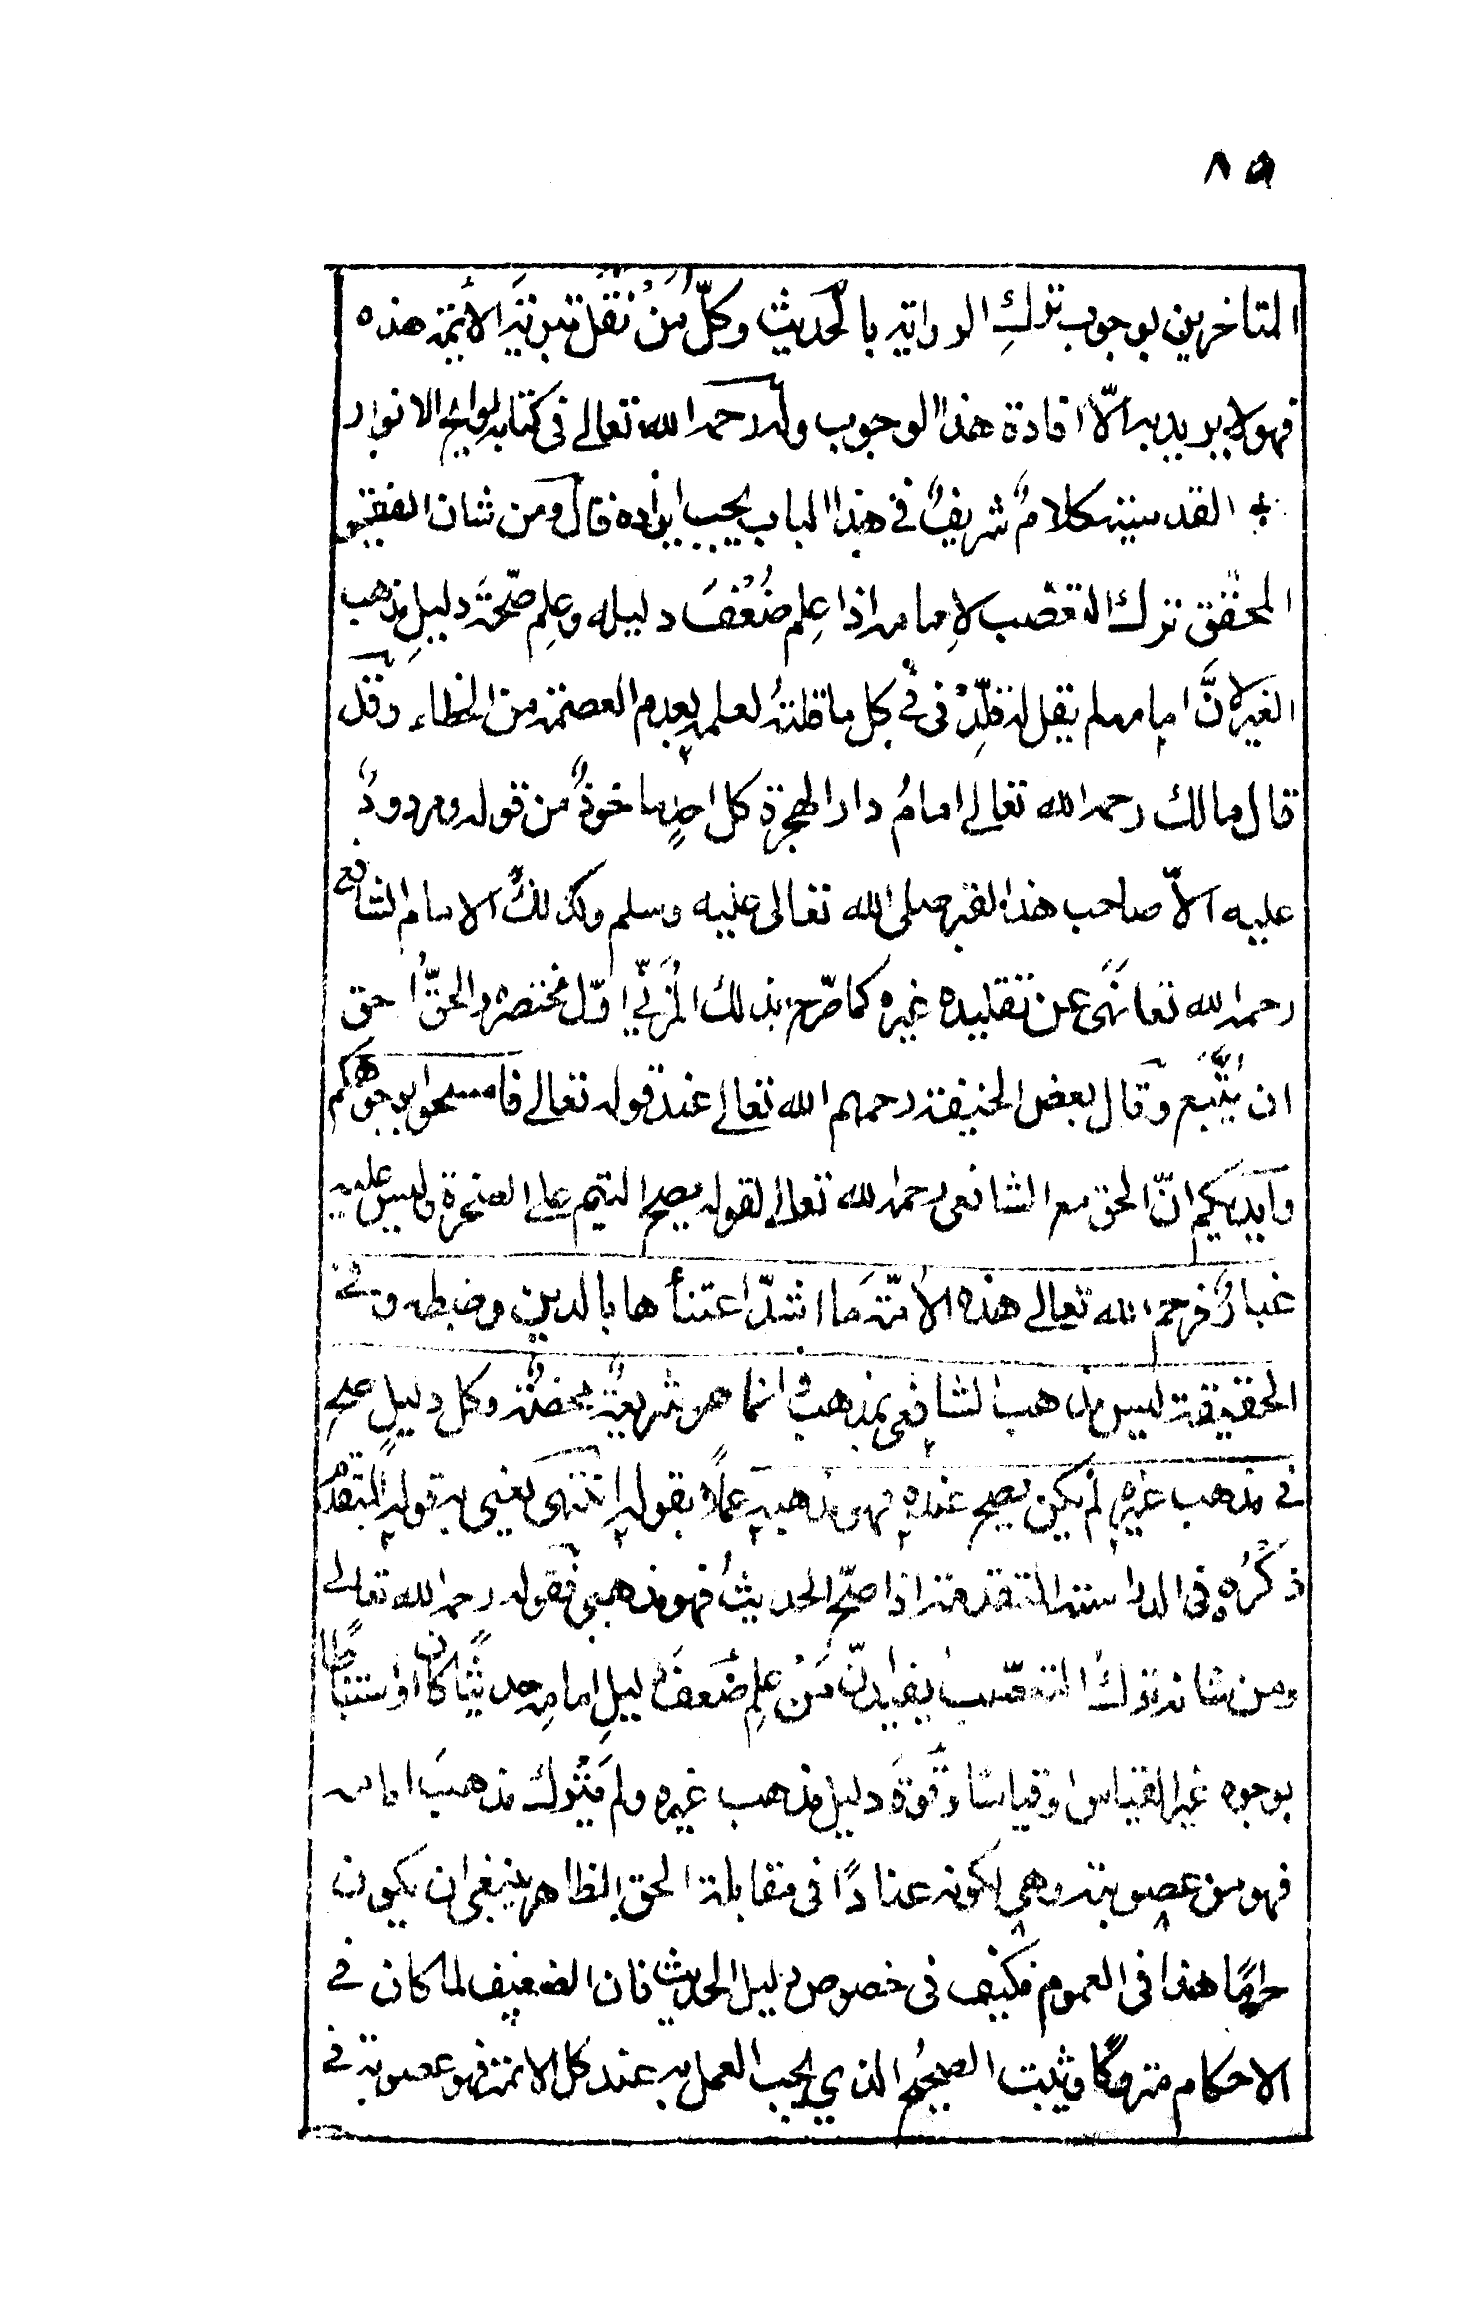 ٨٥
المتاخرين بوجوب ترك الرواية بالحديث وكلّ مَنْ نَقَل تبرئة الأئمة هذه
فهو لا يريد به الّا افادة هذا الوجوب وله رحمه الله تعالے فی كتابه لواقح الانوار
القدسية كلامٌ شريفٌ فے هذا الباب يجب ايراده قال ومن شان الفقيه
المحقق ترك التعصب لإمامه اذا علِم ضُعْفَ دليله وعلِم صحّةَ دليلِ مذهب
الغير لانَّ امامه لم يقل له قلِّدْنی فے كل ما قلتهُ لعلمه بعدم العصمة من الخطاء وقد
قال مالك رحمه الله تعالے امامُ دار الهجرة كل احدٍ ماخوذٌ من قوله ومردودٌ
عليه الّا صاحب هذا القبر صلى الله تعالى عليه وسلم وكذلك الامام الشافعی
رحمه الله تعا نَهَی عن تقليده غيره كما صرّح بذلك المُزَنیّ اوّل مختصره والحقُّ احق
ان يُتَّبع وقال بعض الحنيفة رحمهم الله تعالے عند قوله تعالے فامسحوا بوجوهكم
وايديكم انّ الحق مع الشافعی رحمه الله تعالے لقوله يصح التيمم علے الصخرة وليس عليه
غبارٌ فرحم الله تعالے هذه الأمّةَ ما اشدّ اعتنأها بالدين وضبطه وفے
الحقيقة ليس مذهب الشافعی بمذهب وانما هو شريعةٌ محضةٌ وكل دليلٍ صح
فے مذهب غيره لم يكن يصح عنده فهو مذهبه عملًا بقوله انتهی يعنی به قوله المتقدّم
ذكْرُه فی الدراسة المتقدمة اذا صحّ الحديثُ فهو مذهبی فقوله رحمه الله تعالے
ومن شانه تركُ التعصّب يفيد انّ مَنْ علِم ضُعفَ دليلِ امامه حديثًا كان او استنباطًا
بوجوه غير القياس او قياسًا وقُوّةَ دليل مذهب غيره ولم يَتْرُك مذهبَ امامه
فهو من عصوبته وهی لكونه عنادًا فی مقابلة الحق الظاهر ينبغی ان يكون
حرامًا هذا فی العموم فكيف فی خصوص دليل الحديث فان الضعيف لما كان فے
الاحكام متروكًا وثبت الصحيحُ الذي يجب العمل به عند كل الائمة فهو عصوبة فے